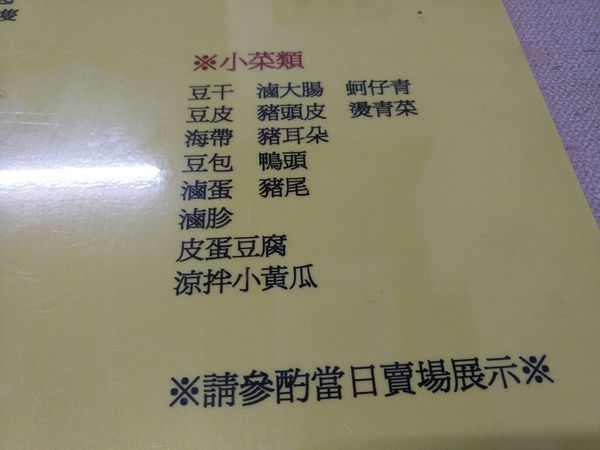 隻
※小菜類
豆干 滷大腸 蚵仔青
豆皮 豬頭皮 燙青菜
海帶 豬耳朵
豆包 鴨頭
滷蛋 豬尾
滷胗
皮蛋豆腐
涼拌小黃瓜
※請參酌當日賣場展示※